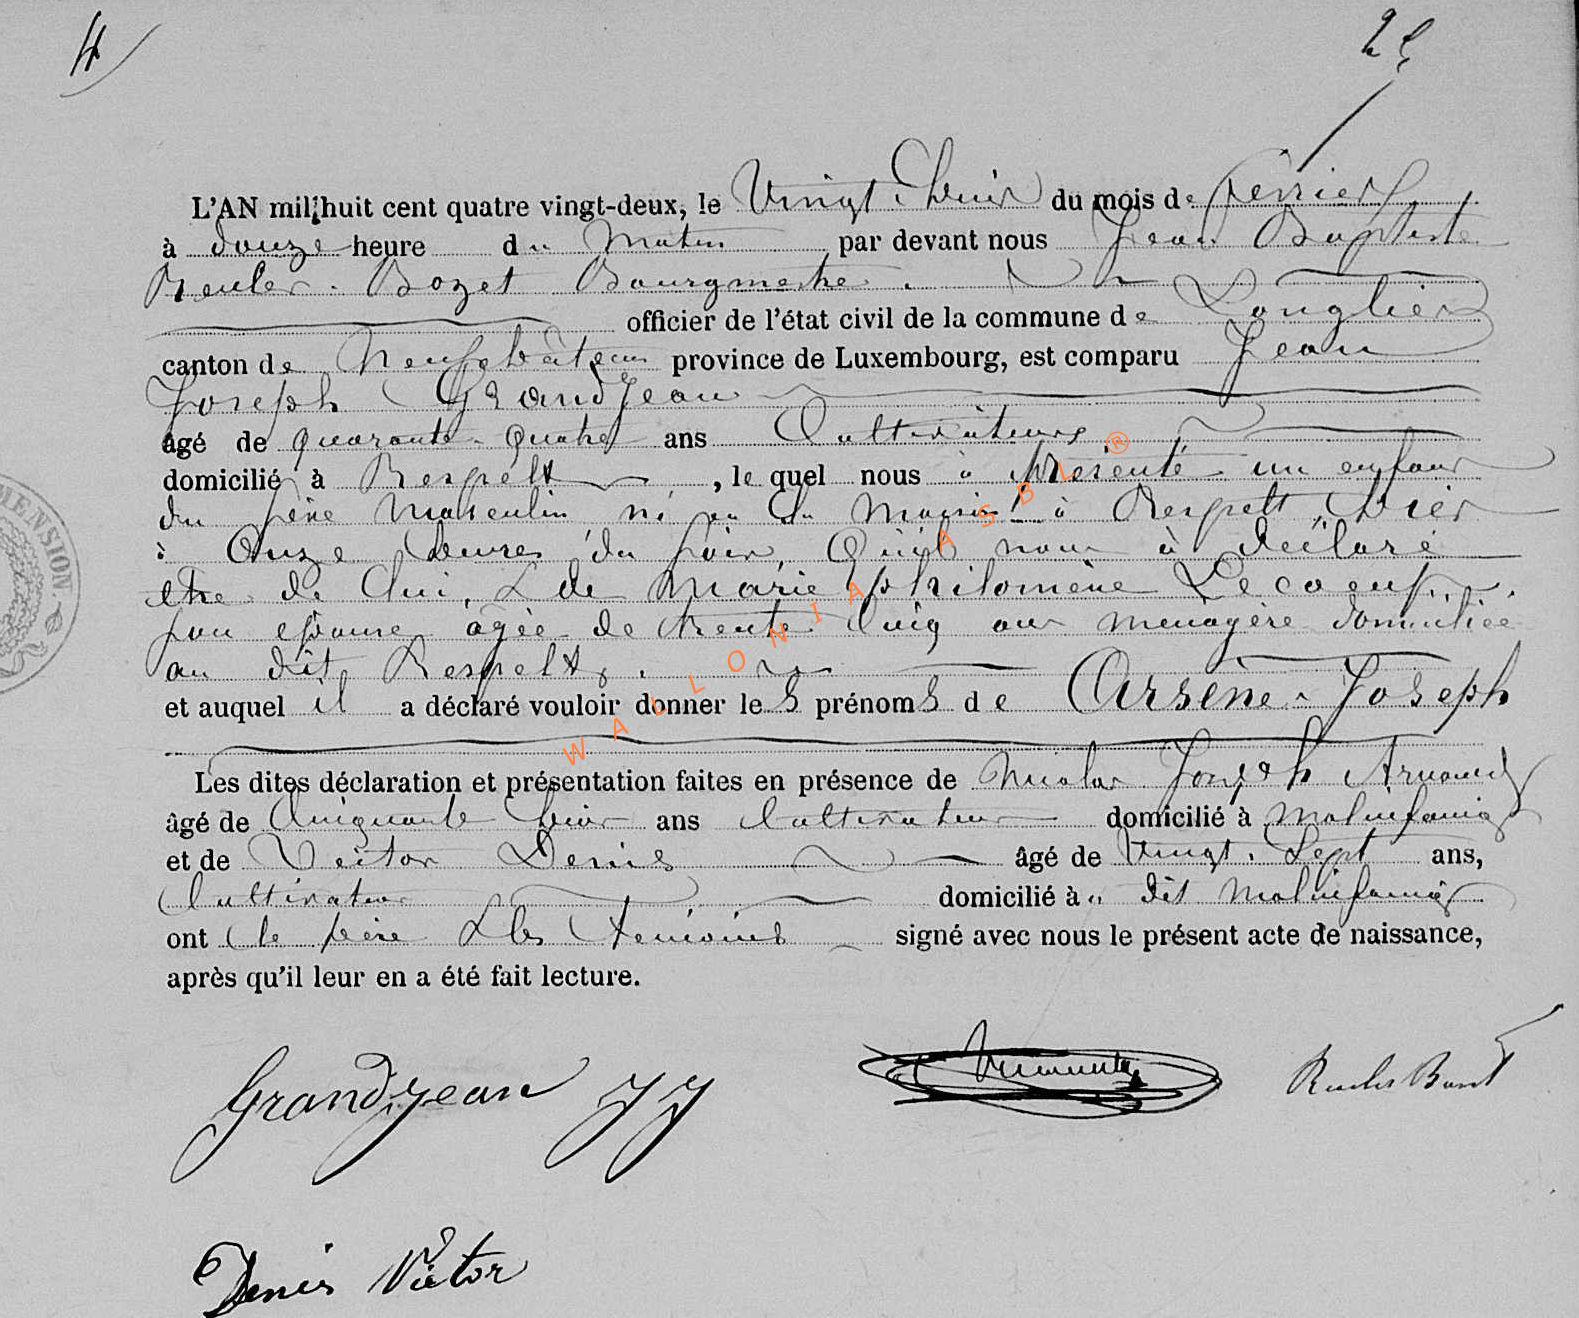 4
L'AN mil huit cent quatre vingt-deux, le Vingt-huit du mois de Février
à douze heure du Matin par devant nous Jean Baptiste
Reuler-Bozet Bourgmestre.
officier de l'état civil de la commune de Longlier
canton de Neufchâteau province de Luxembourg, est comparu Jean
Joseph GrandJean
âgé de quarante-quatre ans Cultivateur
domicilié à Respelt, le quel nous à présenté un enfant
du sexe Masculin né en sa Maison à Respelt, hier
à Onze heures du soir, Qu'il nous à déclaré
etre de lui, & de Marie philomène Lecoeuf,
son épouse, agée de trente cinq ans ménagère domiciliée
au dit Respelt,
et auquel il a déclaré vouloir donner les prénoms de Arsène-Joseph
Les dites déclaration et présentation faites en présence de Nicolas Joseph Arnould
âgé de Cinquante huit ans Cultivateur domicilié à Molinfaing
et de Victor Denis âgé de Vingt-Sept ans,
Cultivateur domicilié à dit Molinfaing
ont le père & les témoins signé avec nous le présent acte de naissance,
après qu'il leur en a été fait lecture.
Grandjean JJ
Denis Victor
WALLONIA ASBL ®
MENSION.